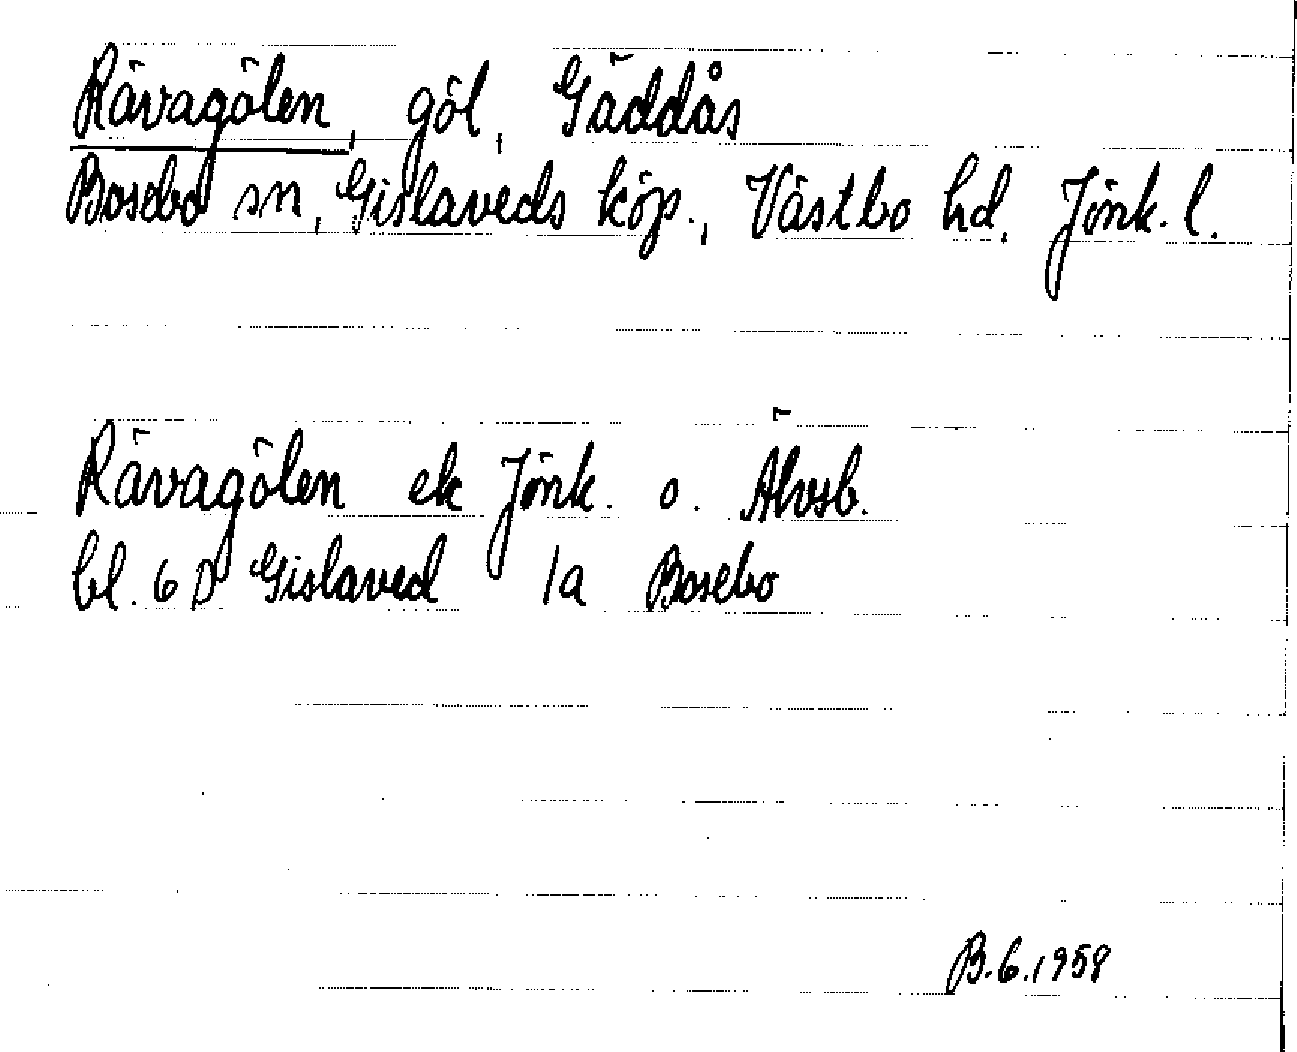 Rävagölen, göl, Gäddås
Bosebo sn, Gislaveds köp., Västbo hd. Jönk. l.
Rävagölen ek Jönk. o. Älvsb.
bl. 6 D Gislaved 1a Bosebo
B.G. 1958